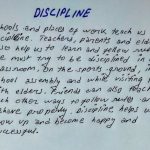 DISCIPLINE
chools and place of work teach us
cipline. Teachers, parents and elde
so help us to learn and follow
e must try to be disciplined in
lassroom, On the sports ground, in
chool assembly and while visiting
ith elders. Friends can also teach
ach other ways to follow rules
ehave properly. Discipline helps
row up and become happy and
uccessful.